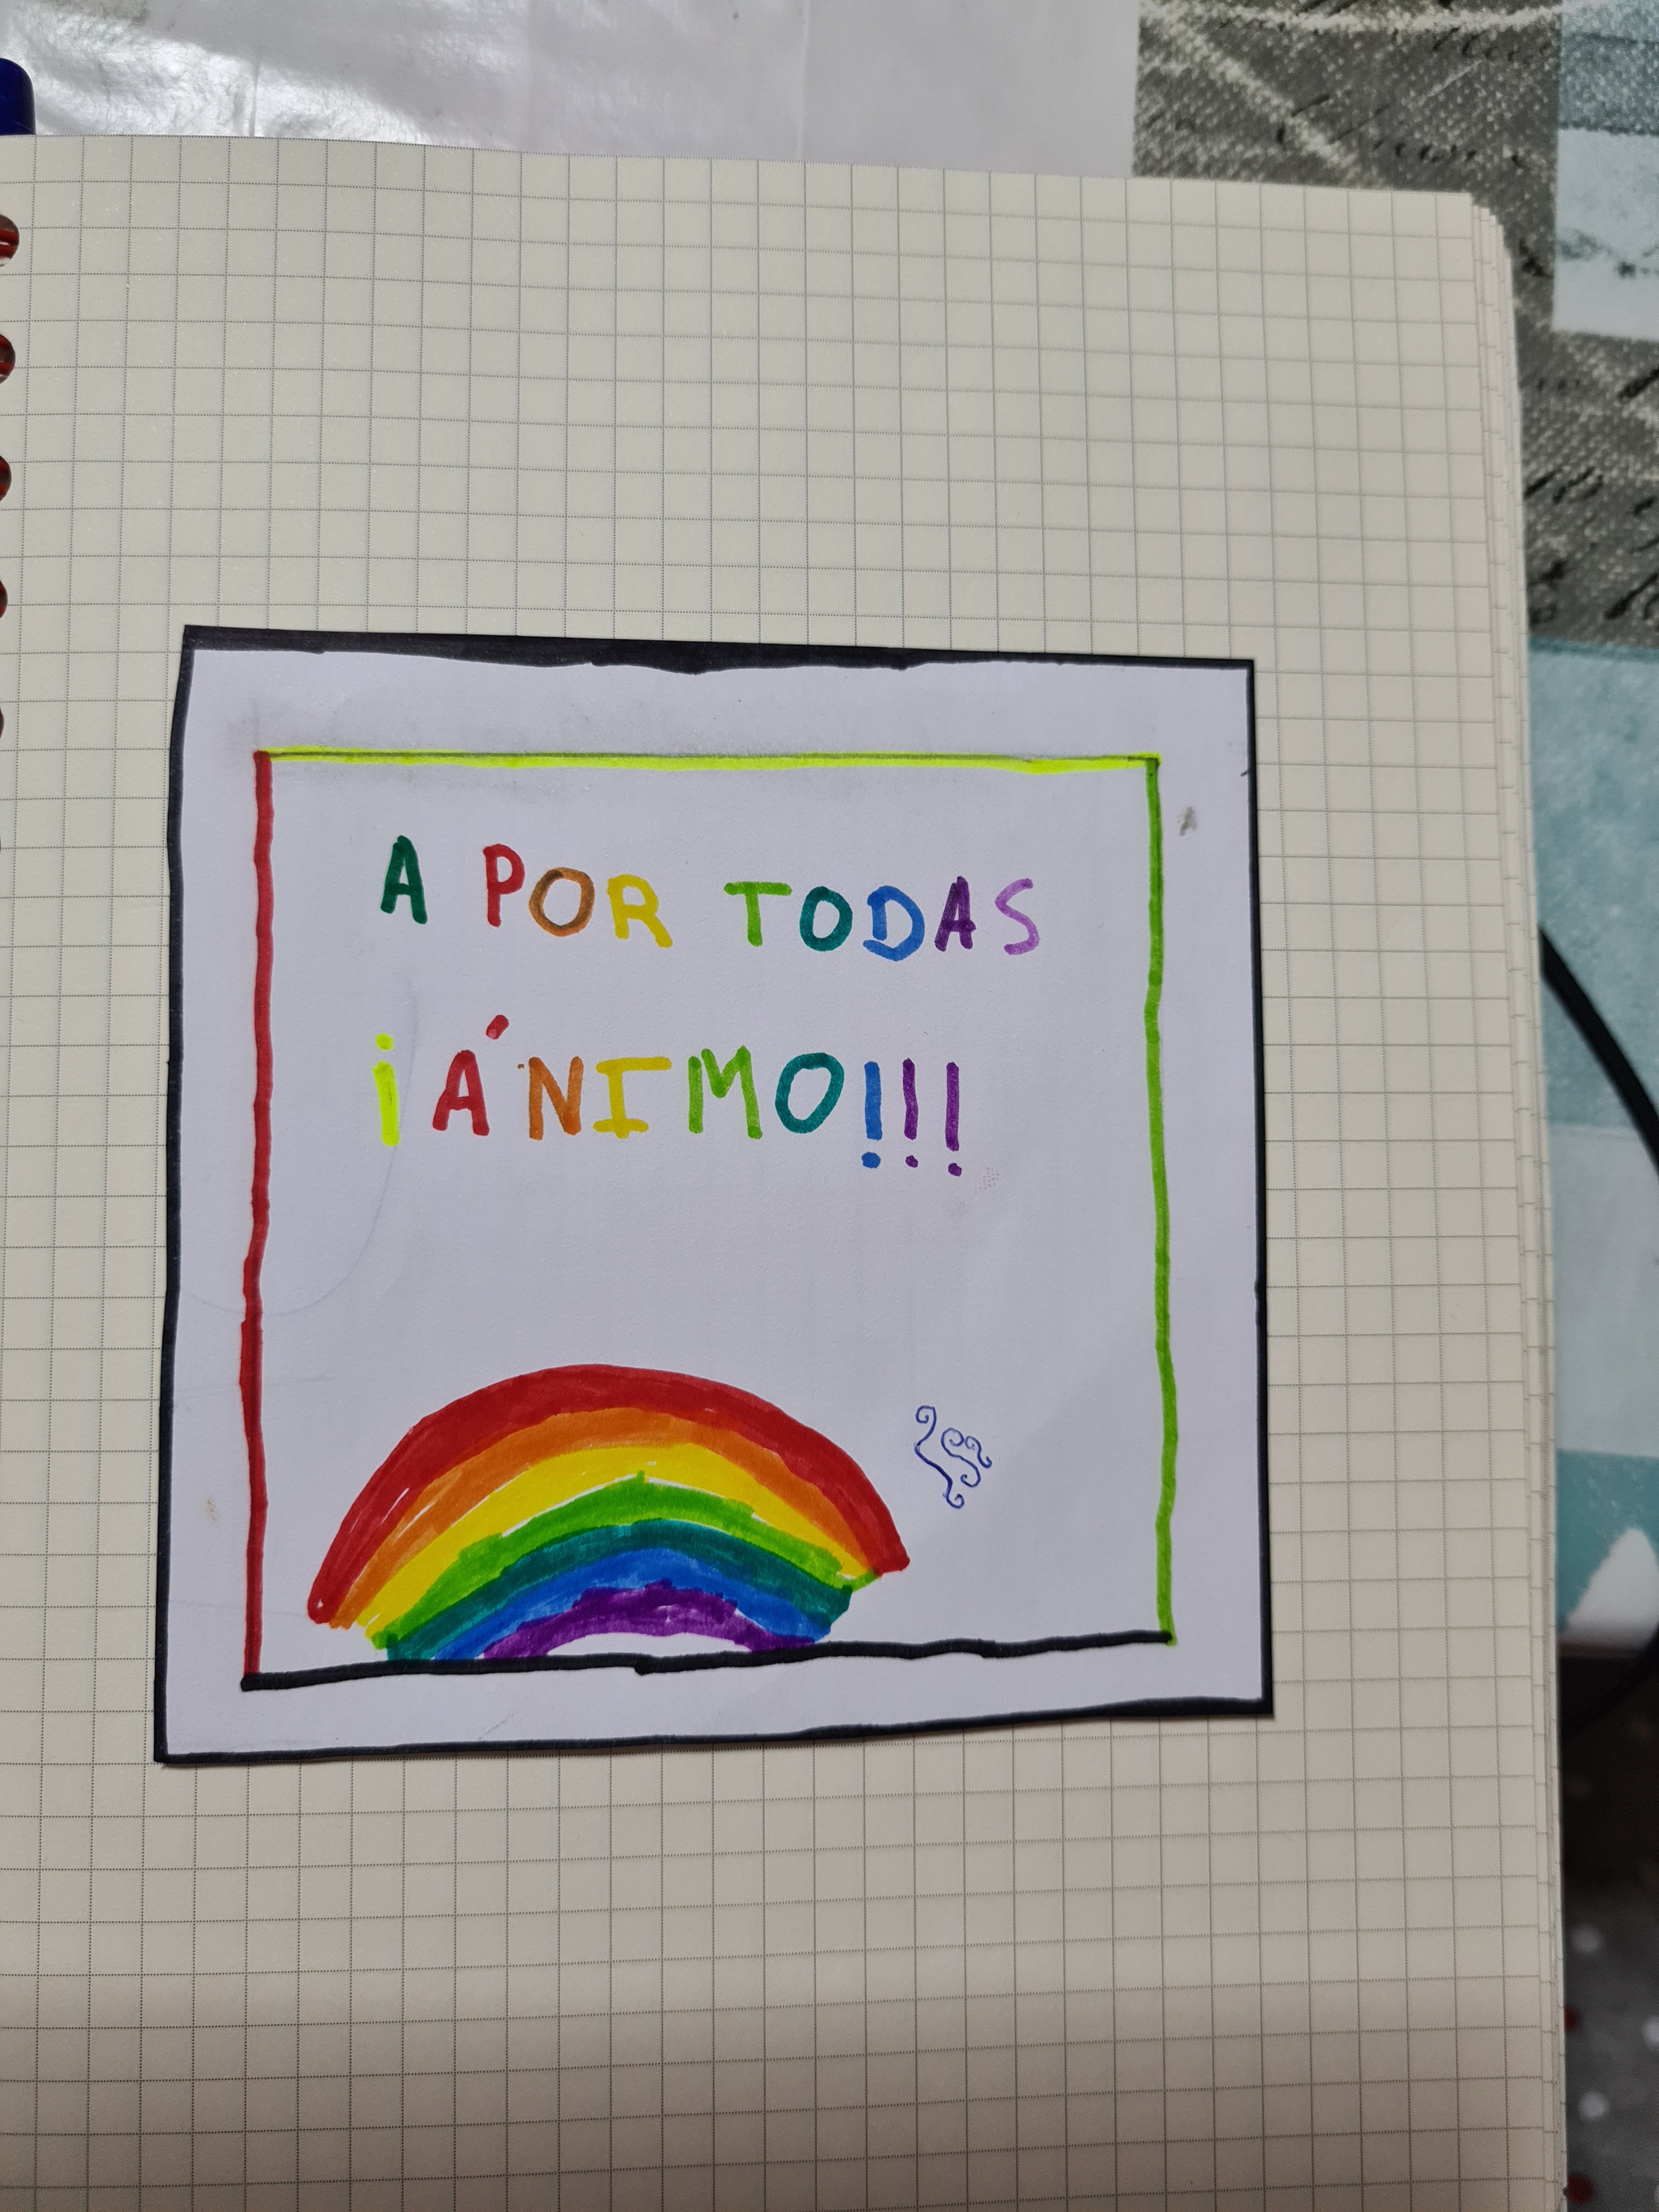 A POR TODAS
¡ÁNIMO!!!